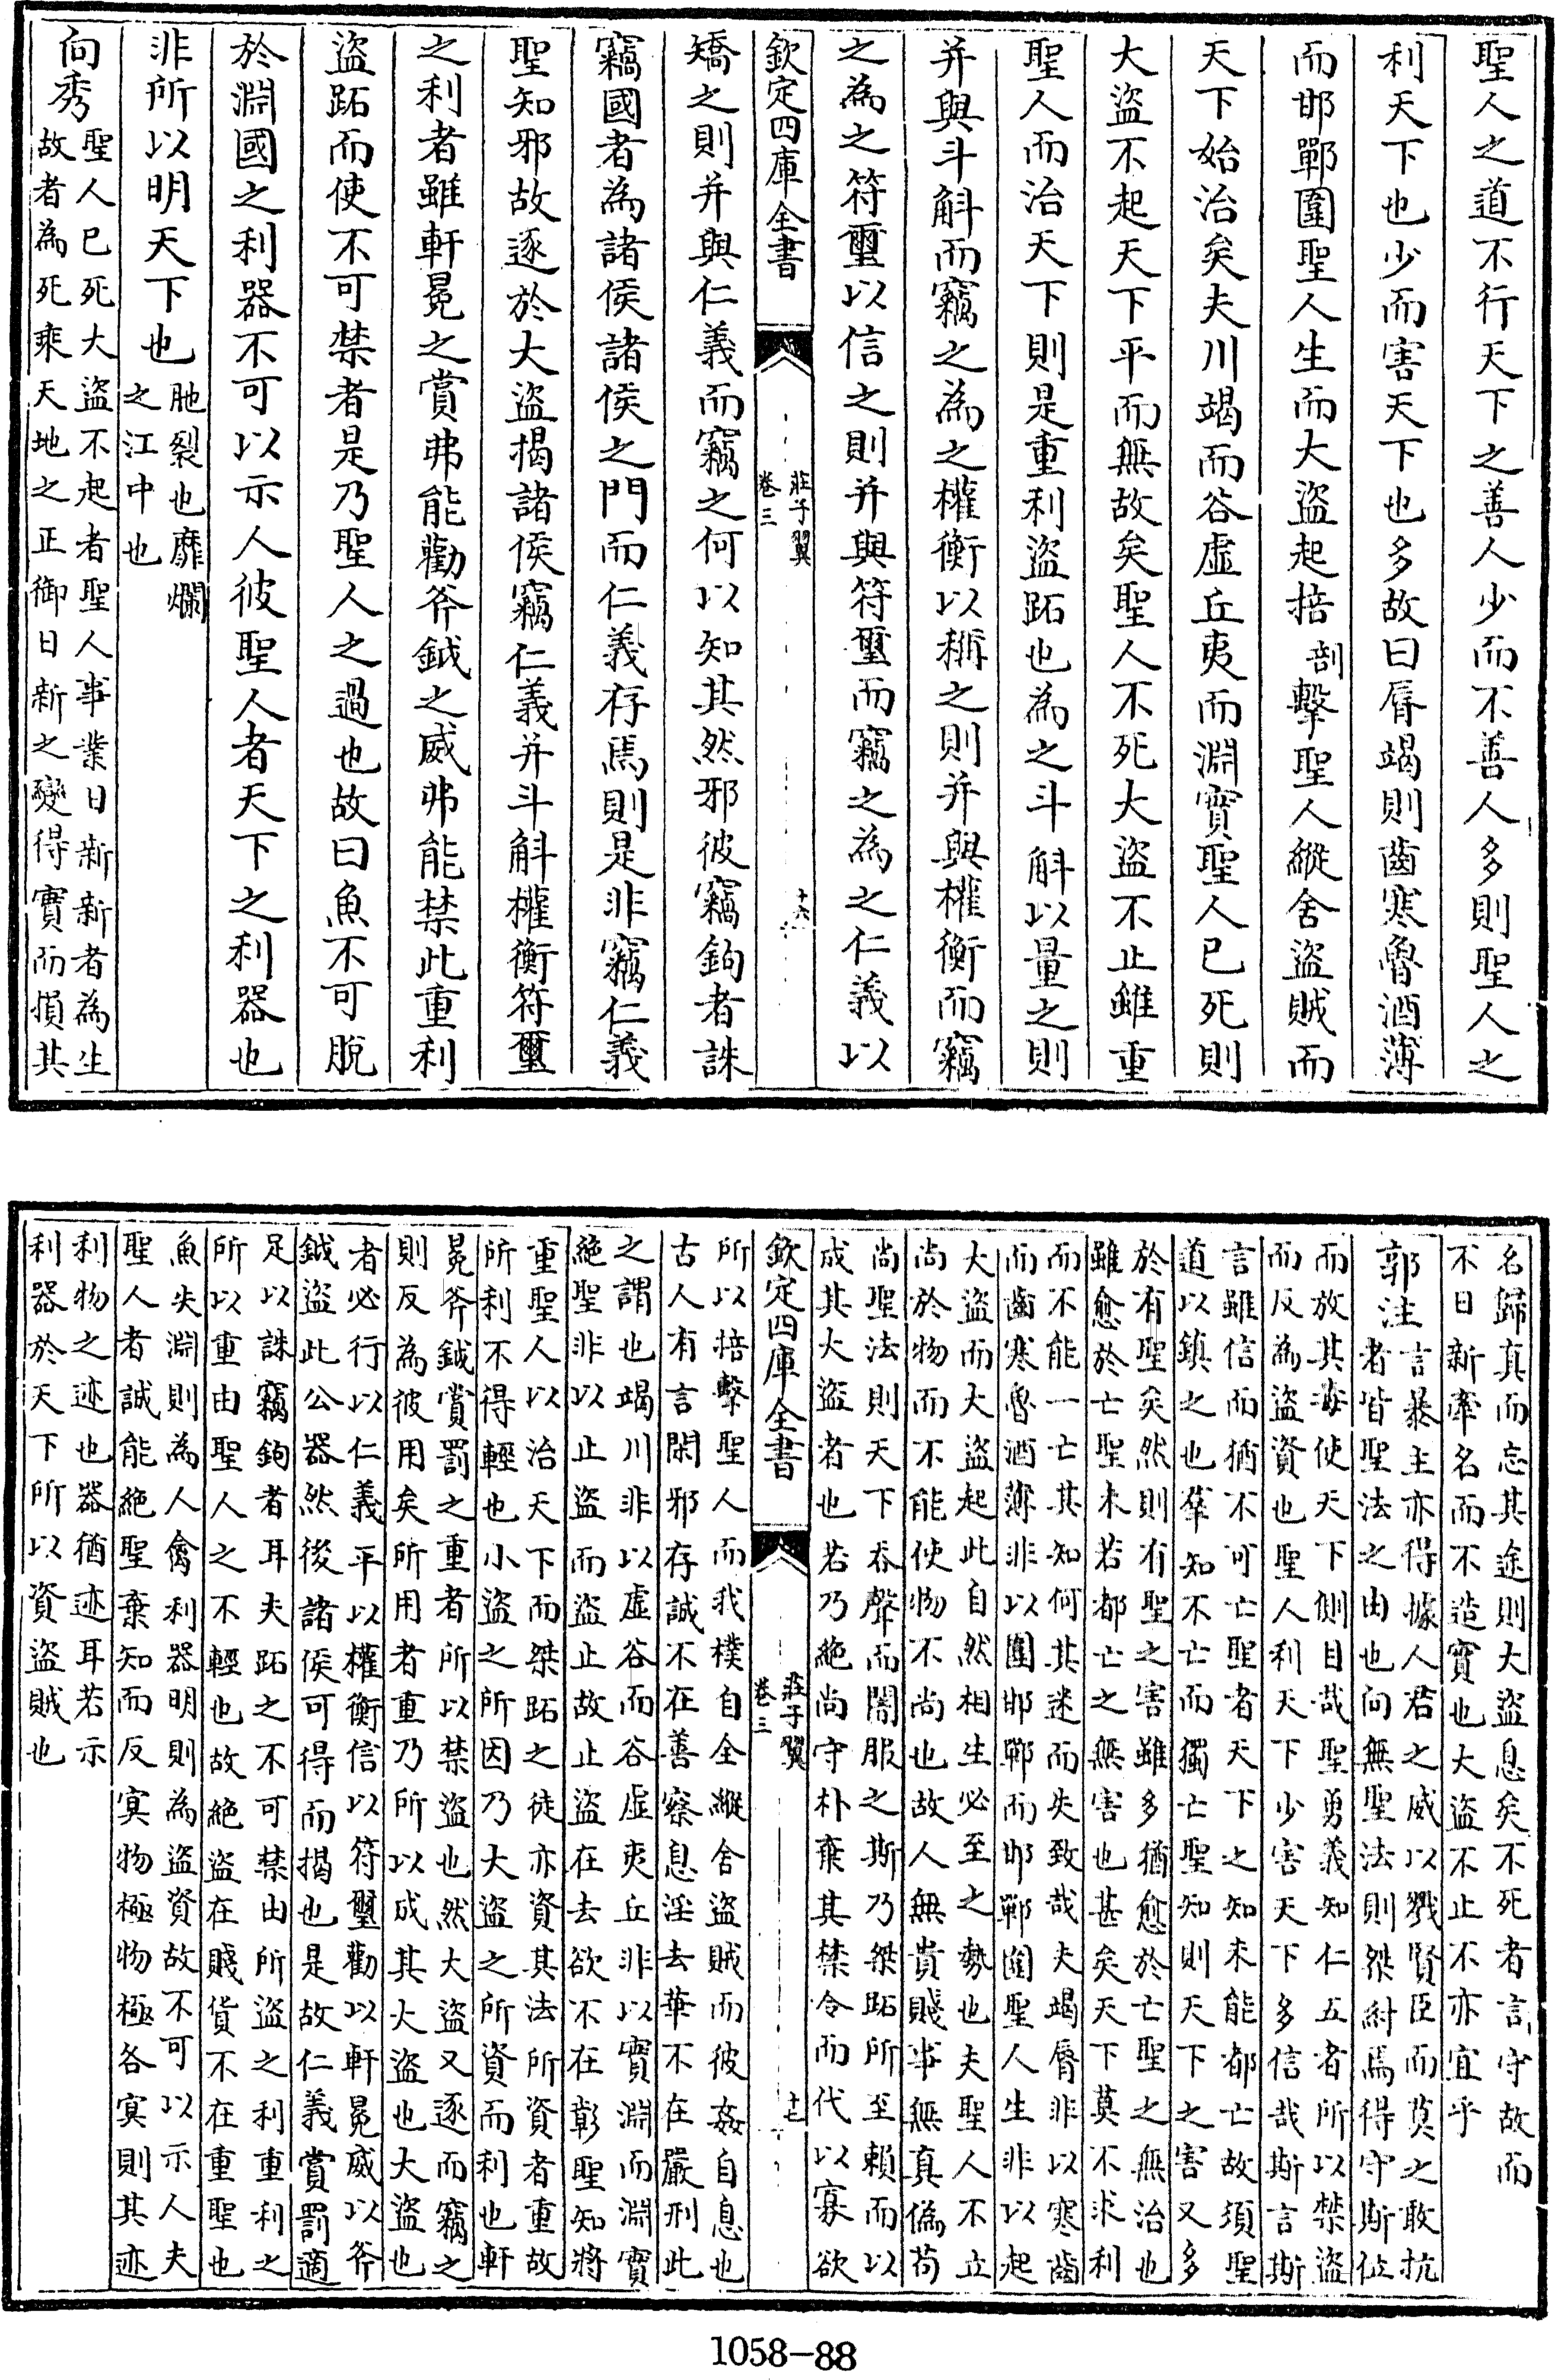 聖人之道不行天下之善人少而不善人多則聖人之
利天下也少而害天下也多故曰脣竭則齒寒魯酒薄
而邯鄲圍聖人生而大盜起掊剖擊聖人縱舍盜賊而
天下始治矣夫川竭而谷虛丘夷而淵實聖人已死則
大盜不起天下平而無故矣聖人不死大盜不止雖重
聖人而治天下則是重利盜跖也為之斗斛以量之則
并與斗斛而竊之為之權衡以稱之則并與權衡而竊
之為之符璽以信之則并與符璽而竊之為之仁義以
欽定四庫全書 莊子翼 卷三 十六
矯之則并與仁義而竊之何以知其然邪彼竊鉤者誅
竊國者為諸侯諸侯之門而仁義存焉則是非竊仁義
聖知邪故逐於大盜揭諸侯竊仁義并斗斛權衡符璽
之利者雖軒冕之賞弗能勸斧鉞之威弗能禁此重利
盜跖而使不可禁者是乃聖人之過也故曰魚不可脫
於淵國之利器不可以示人彼聖人者天下之利器也
非所以明天下也胣裂也靡爛
之江中也
向秀聖人已死大盜不起者聖人事業日新新者為生
故者為死乘天地之正御日新之變得實而損其
名歸真而忘其途則大盜息矣不死者言守故而
不日新牽名而不造實也大盜不止不亦宜乎
郭注言暴主亦得據人君之威以戮賢臣而莫之敢抗
者皆聖法之由也向無聖法則桀紂焉得守斯位
而放其毒使天下側目哉聖勇義知仁五者所以禁盜
而反為盜資也聖人利天下少害天下多信哉斯言斯
言雖信而猶不可亡聖者天下之知未能都亡故須聖
道以鎮之也羣知不亡而獨亡聖知則天下之害又多
於有聖矣然則有聖之害雖多猶愈於亡聖之無治也
雖愈於亡聖未若都亡之無害也甚矣天下莫不求利
而不能一亡其知何其迷而失致哉夫竭脣非以寒齒
而齒寒魯酒薄非以圍邯鄲而邯鄲圍聖人生非以起
大盜而大盜起此自然相生必至之勢也夫聖人不立
尚於物而不能使物不尚也故人無貴賤事無真偽苟
尚聖法則天下吞聲而闇服之斯乃桀跖所至賴而以
成其大盜者也若乃絶尚守朴棄其禁令而代以寡欲
欽定四庫全書 莊子翼 卷三 十七
所以掊擊聖人而我樸自全縱舍盜賊而彼姦自息也
古人有言閑邪存誠不在善察息淫去華不在嚴刑此
之謂也竭川非以虛谷而谷虛夷丘非以實淵而淵實
絶聖非以止盜而盜止故止盜在去欲不在彰聖知將
重聖人以治天下而桀跖之徒亦資其法所資者重故
所利不得輕也小盜之所因乃大盜之所資而利也軒
冕斧鉞賞罰之重者所以禁盜也然大盜又逐而竊之
則反為彼用矣所用者重乃所以成其大盜也大盜也
者必行以仁義平以權衡信以符璽勸以軒冕威以斧
鉞盜此公器然後諸侯可得而揭也是故仁義賞罰適
足以誅竊鉤者耳夫跖之不可禁由所盜之利重利之
所以重由聖人之不輕也故絶盜在賤貨不在重聖也
魚失淵則為人禽利器明則為盜資故不可以示人夫
聖人者誠能絶聖棄知而反冥物極物極各冥則其迹
利物之迹也器猶迹耳若示
利器於天下所以資盜賊也
1058-88